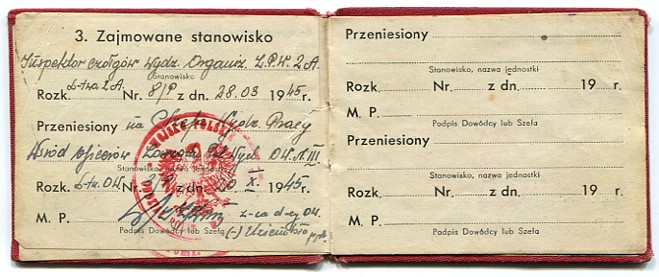 3. Zajmowane stanowisko
Inspektor czołgów Wydz. Organiz. Z.P.W. 2 A.
Stanowisko
Rozk. D-twa 2A. Nr. 8/P z dn. 28.03 1945 r.
Przeniesiony na Szefa Wydz. Pracy
Wśród oficerów Zarządu Pol. Wych. O.W. III
Stanowisko, nazwa jednostki
Rozk. D-twa OW Nr. z dn. 20. X. 1945 r.
M. P. z-ca d-cy OW.
Podpis Dowódcy lub Szefa (-)
Przeniesiony
Stanowisko, nazwa jednostki
Rozk. Nr. z dn. 19 r.
M. P.
Podpis Dowódcy lub Szefa
Przeniesiony
Stanowisko, nazwa jednostki
Rozk. Nr. z dn. 19 r.
M. P.
Podpis Dowódcy lub Szefa